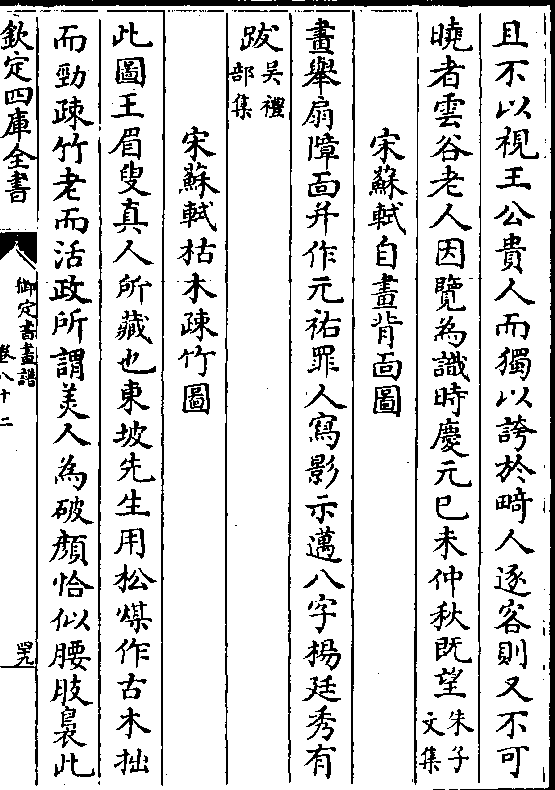 且不以視王公貴人而獨以誇於畸人逐客則又不可
曉者雲谷老人因覽為識時慶元己未仲秋既望朱子文集
宋蘇軾自畫背面圖
畫舉扇障面并作元祐罪人寫影示邁八字楊廷秀有
跋吳禮部集
宋蘇軾枯木疎竹圖
此圖王眉叟真人所藏也東坡先生用松煤作古木拙
而勁疎竹老而活政所謂美人為破顔恰似腰肢裊此
欽定四庫全書
御定書畫譜
卷八十二
四九